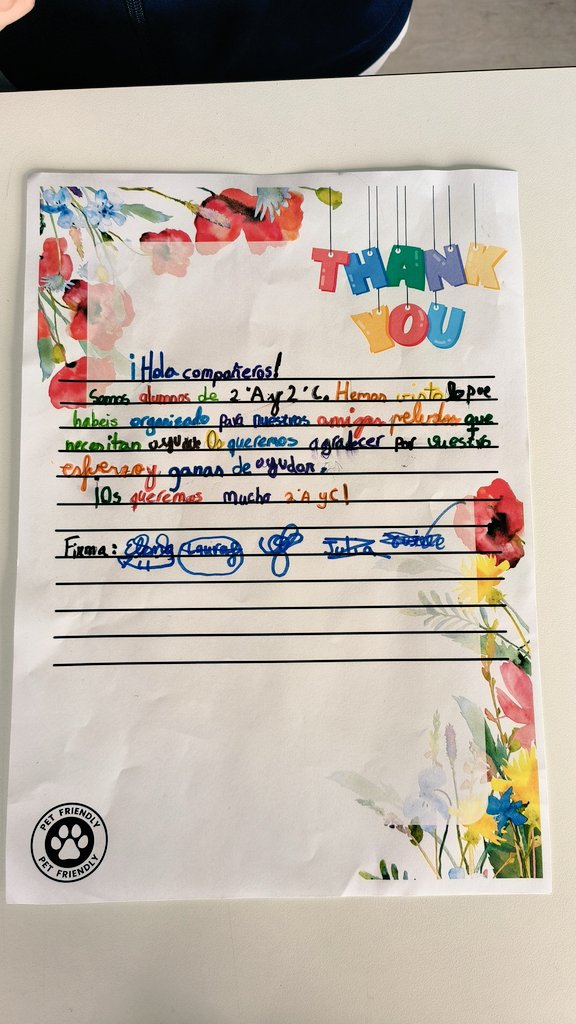 THANK
YOU
¡Hola compañeros!
Somos alumnos de 2ºA y 2ºC. Hemos visto lo que
habeis organizado para nuestros amigos peludos que
necesitan ayuda Os queremos agradecer por vuestro
esfuerzo y ganas de ayudar.
¡Os queremos mucho 2ºA y C!
Firma: Laura Julia
PET FRIENDLY
PET FRIENDLY